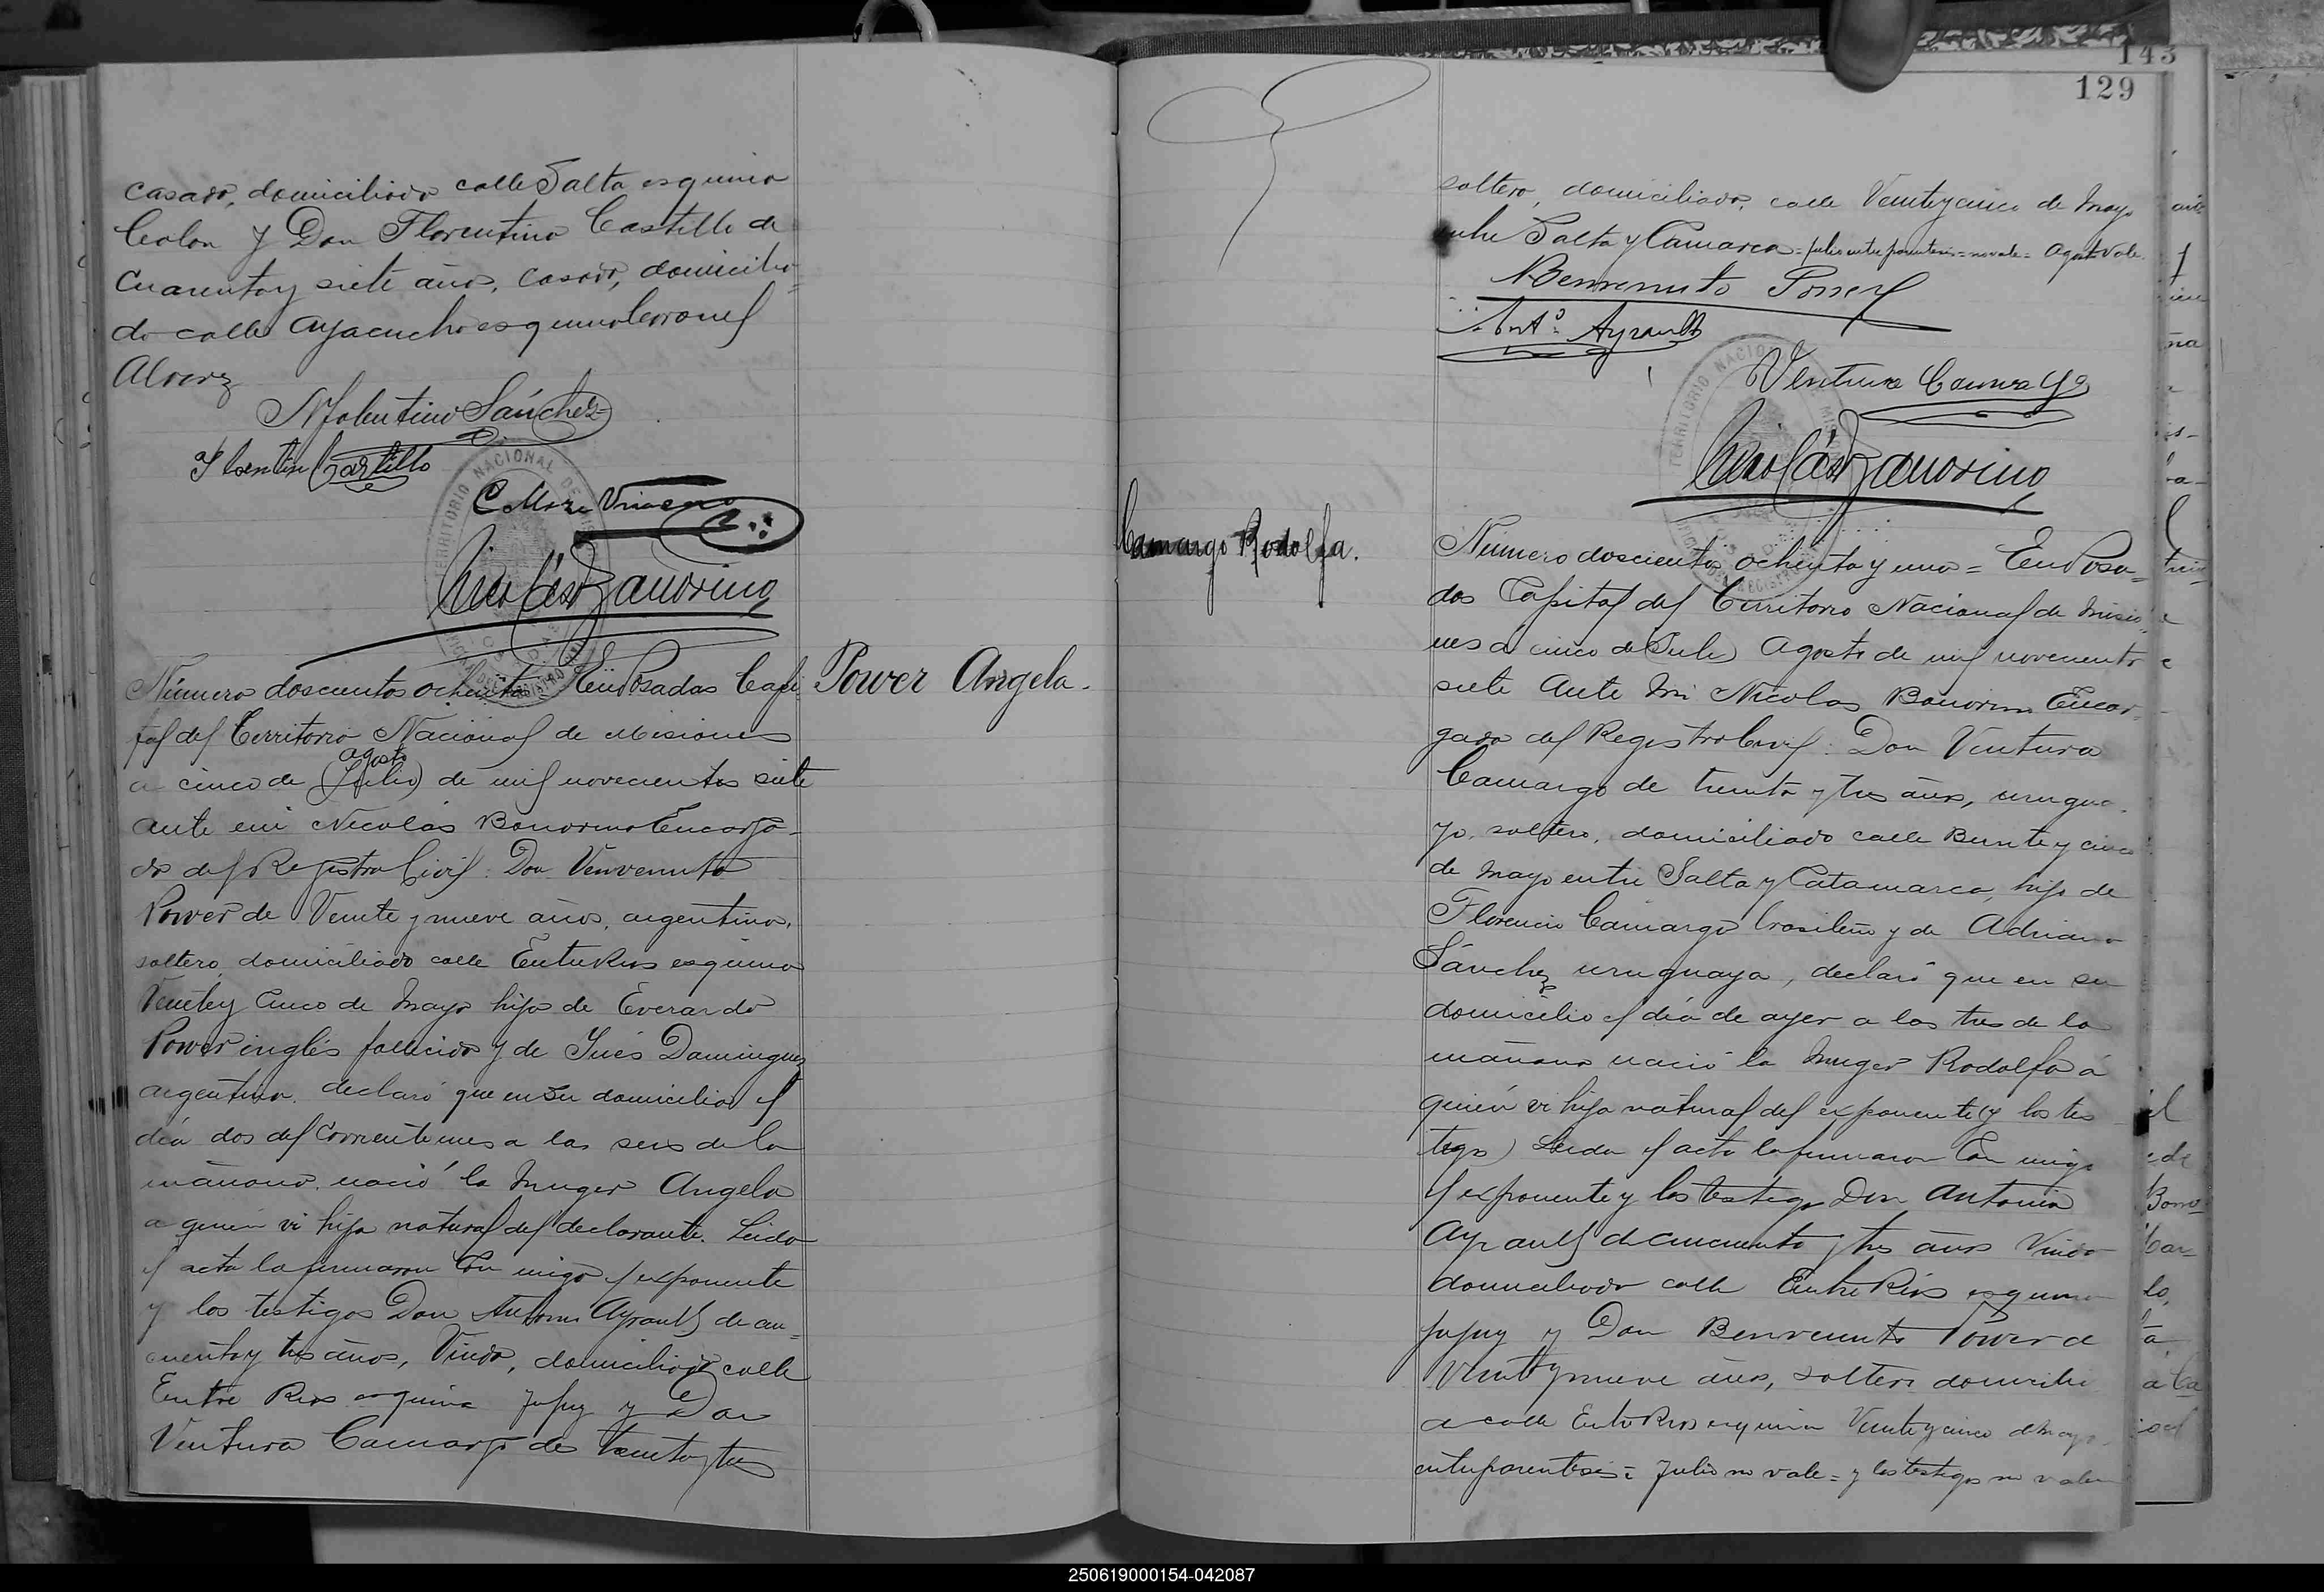 casado, domiciliado calle Salta esquina
Colon y Don Florentino Castillo de
cuarenta y siete años, casado, domicilia=
do calle Ayacucho esquina Coronel
Alvarez
Florentin Castillo
Nicolás Bonorino
Número doscientos ochenta = En Posadas Capi
tal del Territorio Nacional de Misiones
agosto
a cinco de (Julio) de mil novecientos siete
ante mi Nicolás Bonorino Encarga-
do del Registro Civil: Don Venvenuto
Power de Veinte y nueve años, argentino,
soltero, domiciliado calle Entre Rios esquina
Veintey Cinco de Mayo hijo de Everardo
Power inglés fallecido y de Inés Dominguez
argentina, declaró que en su domicilio el
día dos del corriente mes a las seis de la
mañana nació la muger Angela
a quien vi hija natural del declarante. Leida
el acta la firmaron con migo el exponente
y los testigos Don Antonio Ayrault de cin=
cuenta y tres años, Viudo, domiciliado calle
Entre Rios esquina Jujuy y Don
Ventura Camargo de treinta y tres
Power Angela.
143
129
soltero, domiciliado, calle Veinteycinco de Mayo
entre Salta y Camarca = julio entre parentesis = no vale = Agosto Vale.
Benvenuto Power
Antº Ayrault
Ventura Camargo
Nicolás Bonorino
Camargo Rodolfa.
Número doscientos ochenta y uno = En Posa=
das Capital del Territorio Nacional de Misio
nes a cinco de (Julio) Agosto de mil novecientos
siete Ante mi Nicolas Bonorino Encar
gado del Registro Civil: Don Ventura
Camargo de treinta y tres años, urugua
yo, soltero, domiciliado calle Beinte y cinco
de Mayo entre Salta y Catamarca, hijo de
Florencio Camargo brasileño y de Adriana
Sánchez uruguaya, declaró que en su
domicilio el día de ayer a las tres de la
mañana nació la muger Rodolfa á
quién vi hija natural del exponente (y los tes
tigos) Leida el acta la firmaron con migo
el exponente y los testigos Don Antonio
Ayrault de cincuenta y tres años Viudo
domiciliado calle Entre Rios esquina
Jujuy y Don Benvenuto Power de
Veinte y nueve años, soltero domicilia
a calle Entre Rios esquina Veinte y cinco de Mayo.
entre parentesis = Julio no vale = y los testigos no valen
250619000154-042087